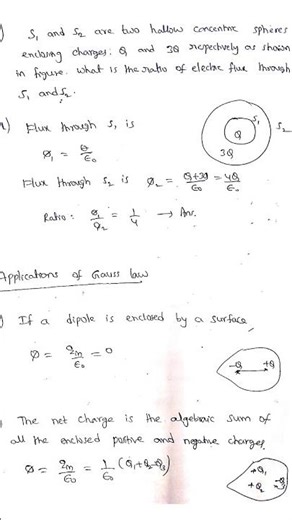 ) S₁ and S₂ are two hallow concentric spheres
enclosing charges Q and 3Q respectively as shown
in figure. what is the ratio of electric flux through
S₁ and S₂.
) Flux through S₁ is
φ₁ = Q/ε₀
S₁
S₂
Q
3Q
Flux through S₂ is φ₂ = Q+3Q/ε₀ = 4Q/ε₀
Ratio: φ₁/φ₂ = 1/4 → Ans.
Applications of Gauss law
) If a dipole is enclosed by a surface
φ = qin/ε₀ = 0
-Q +Q
The net charge is the algebraic sum of
all the enclosed postive and negative charges.
φ = qin/ε₀ = 1/ε₀ (Q₁+Q₂-Q₃)
+Q₁
+Q₂
-Q₃